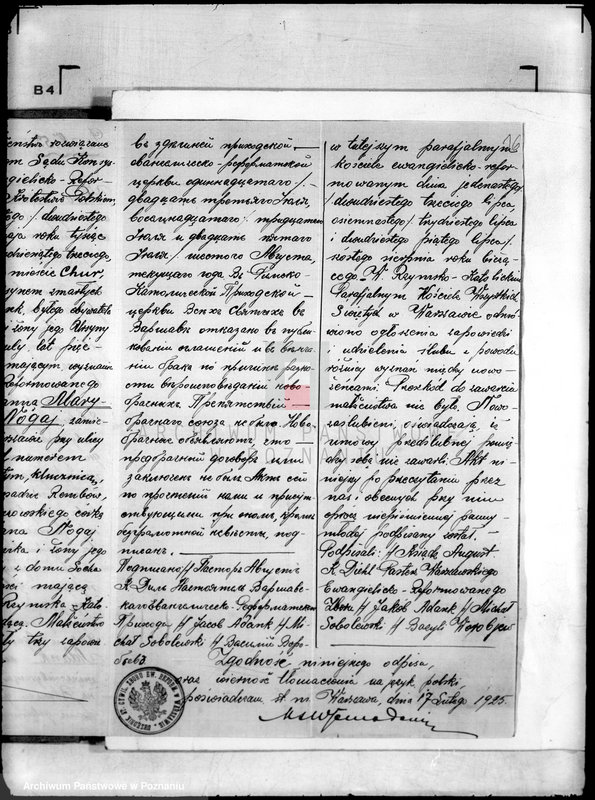 B4
eństwo rozwiązane
m Sądu Konsy-
gielicko-Refor-
Królestwie Polskiem
ego / dwudziestego
aja roku tysiąc
mieście Chur,
synem zmarłych
ank, byłego obywatela
i żony jego Urszuli
lat pięć-
mającym, wyznania
reformowanego
anną Mary-
Nogaj, zamie-
szawie przy ulicy
numerem
tym, klucznicą,
padnie Rembów,
nowskiego córką
na Nogaj
i żony jego
z domu Socha
mającą
Rzymsko-Kato-
Małżeństwo
trzy zapowie
въ здѣшней приходской
евангелическо-реформатской
церкви одиннадцатаго /
двадцать третьяго Іюля,
восемнадцатаго / тридцатаго
Іюля и двадцать пятаго
Іюля / шестого Августа,
текущаго года. Въ Римско-
Католической Приходской
церкви Всѣхъ Святыхъ въ
Варшавѣ отказано въ публи-
кованіи оглашеній и въ вѣнча-
ніи брака по причинѣ разно-
сти вѣроисповѣданій ново-
брачныхъ. Препятствій
брачнаго союза не было. Ново-
брачные объявляютъ, что
предбрачный договоръ ими
заключенъ не былъ. Актъ сей
по прочтеніи нами и присут-
ствующими при ономъ, кромѣ
безграмотной невѣсты, под-
писанъ.
Подписано /-/ Пасторъ Августъ
К. Диль Настоятель Варшав-
скаго Евангелическо-Реформатскаго
Прихода /-/ Jacob Adank /-/ Mi-
chał Sobolewski /-/ Василій Воро-
бьевъ
26
w tutejszym parafjalnym
kościele ewangelicko-refor-
mowanym dnia jedenastego
/ dwudziestego trzeciego lipca
osiemnastego / trzydziestego lipca
i dwudziestego piątego lipca /
szóstego sierpnia roku bieżą-
cego. W Rzymsko-Katolickim
Parafjalnym Kościele Wszystkich
Świętych w Warszawie odmó-
wiono ogłoszenia zapowiedzi
i udzielenia ślubu z powodu
różnicy wyznań między nowo-
żeńcami. Przeszkód do zawarcia
małżeństwa nie było. Nowo-
zaślubieni oświadczają, iż
umowy przedślubnej pomię-
dzy sobą nie zawarli. Akt ni-
niejszy po przeczytaniu przez
nas i obecnych przy nim
oprócz niepiśmiennej panny
młodej podpisany został.
Podpisali: /-/ Ksiądz August
K. Diehl Pastor Warszawskiego
Ewangelicko-Reformowanego
Zboru /-/ Jakób Adank /-/ Michał
Sobolewski /-/ Bazyli Worobjew
Zgodność niniejszego odpisu,
oraz wierność tłomaczenia na język polski
poświadczam st. m. Warszawa, dnia 17 Lutego 1925.
ARCHIWUM PAŃSTWOWE
POZNAŃ
Archiwum Państwowe w Poznaniu